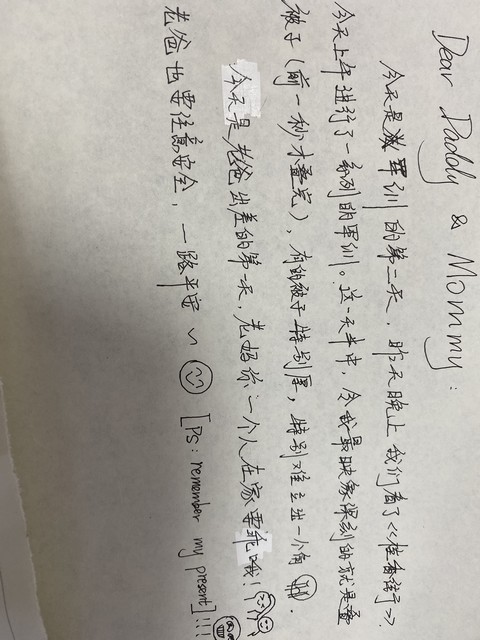 Dear Daddy & Mommy:
今天是军训的第二天，昨天晚上我们看了《桂香街》
今天上午进行了一系列的军训。这一天半中，令我最映象深刻的就是叠
被子（前一秒才叠完），有的被子特别厚，特别难立出一个角
今天是老爸出差的第一天，老妈你一个人在家要乖哦！
老爸也要注意安全，一路平安~ [Ps: remember my present]!!!